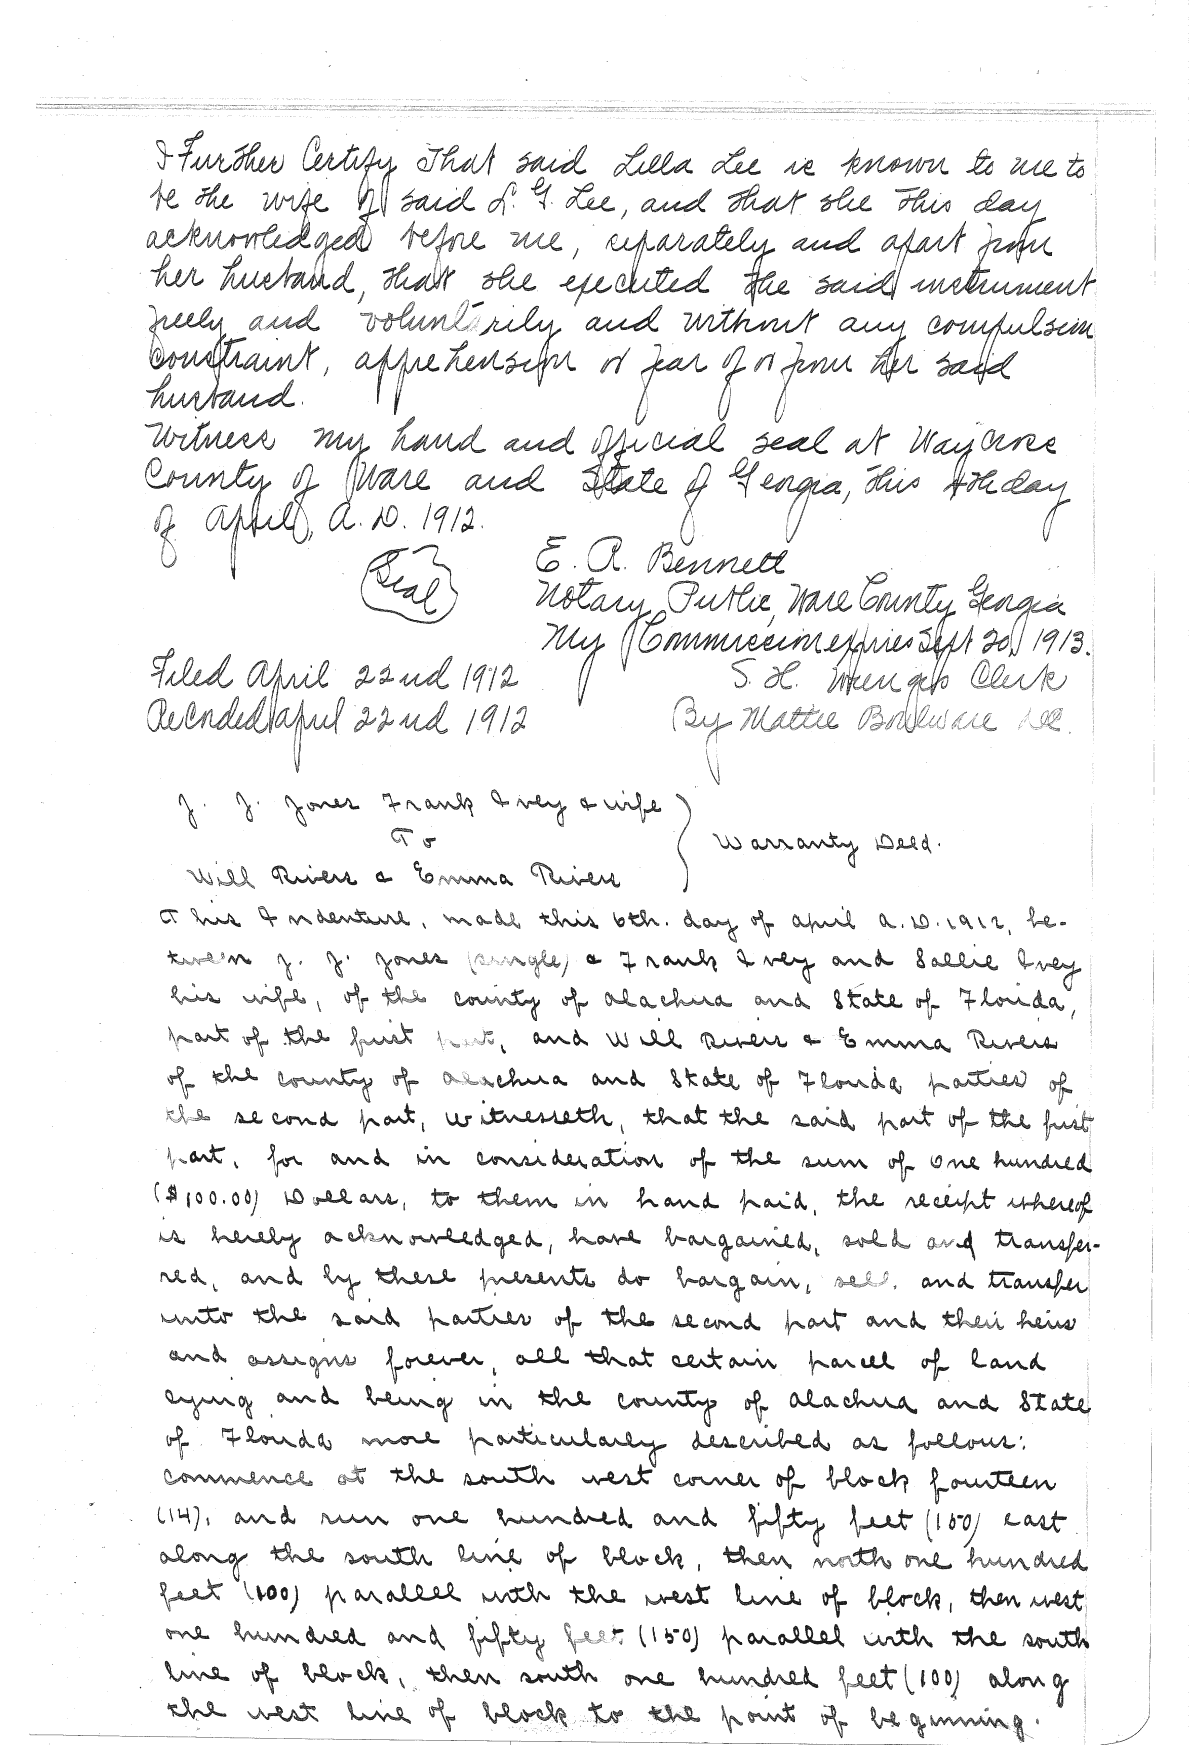 I Further Certify That said Lilla Lee is known to me to
be the wife of said L. G. Lee, and that she this day
acknowledged before me, separately and apart from
her husband, that she executed the said instrument
freely and voluntarily and without any compulsion
constraint, apprehension or fear of or from her said
husband.
Witness my hand and official seal at Waycross
County of Ware and State of Georgia, this 4th day
of April, A. D. 1912.
Seal
E. A. Bennett
Notary Public, Ware County Georgia
My Commission expires Sept 20, 1913.
Filed April 22nd 1912
S. H. Wienges Clerk
Recorded April 22nd 1912
By Mattie Boulware
J. J. Jones Frank Ivey & wife
To
Warranty Deed.
Will Rivers & Emma Rivers
This Indenture, made this 6th. day of April A.D. 1912, be-
tween J. J. Jones (single) & Frank Ivey and Sallie Ivey
his wife, of the county of Alachua and State of Florida,
part of the first part, and Will Rivers & Emma Rivers
of the county of Alachua and State of Florida parties of
the second part, witnesseth, that the said part of the first
part, for and in consideration of the sum of One hundred
($100.00) Dollars, to them in hand paid, the receipt whereof
is hereby acknowledged, have bargained, sold and transfer-
red, and by these presents do bargain, sell, and transfer
unto the said parties of the second part and their heirs
and assigns forever, all that certain parcel of land
lying and being in the county of Alachua and State
of Florida more particularly described as follows:
commence at the south west corner of block fourteen
(14), and run one hundred and fifty feet (150) east
along the south line of block, then north one hundred
feet (100) parallel with the west line of block, then west
one hundred and fifty feet (150) parallel with the south
line of block, then south one hundred feet (100) along
the west line of block to the point of beginning.